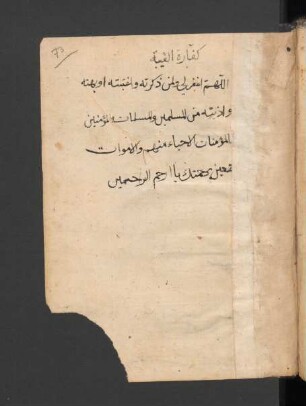 73
كفارة الغيبة
اللهم اغفر لي ولمن ذكرته واغتبته او بهته
واذيته من المسلمين والمسلمات والمؤمنين
المؤمنات الاحياء منهم والاموات
برحمتك يا ارحم الرحمين